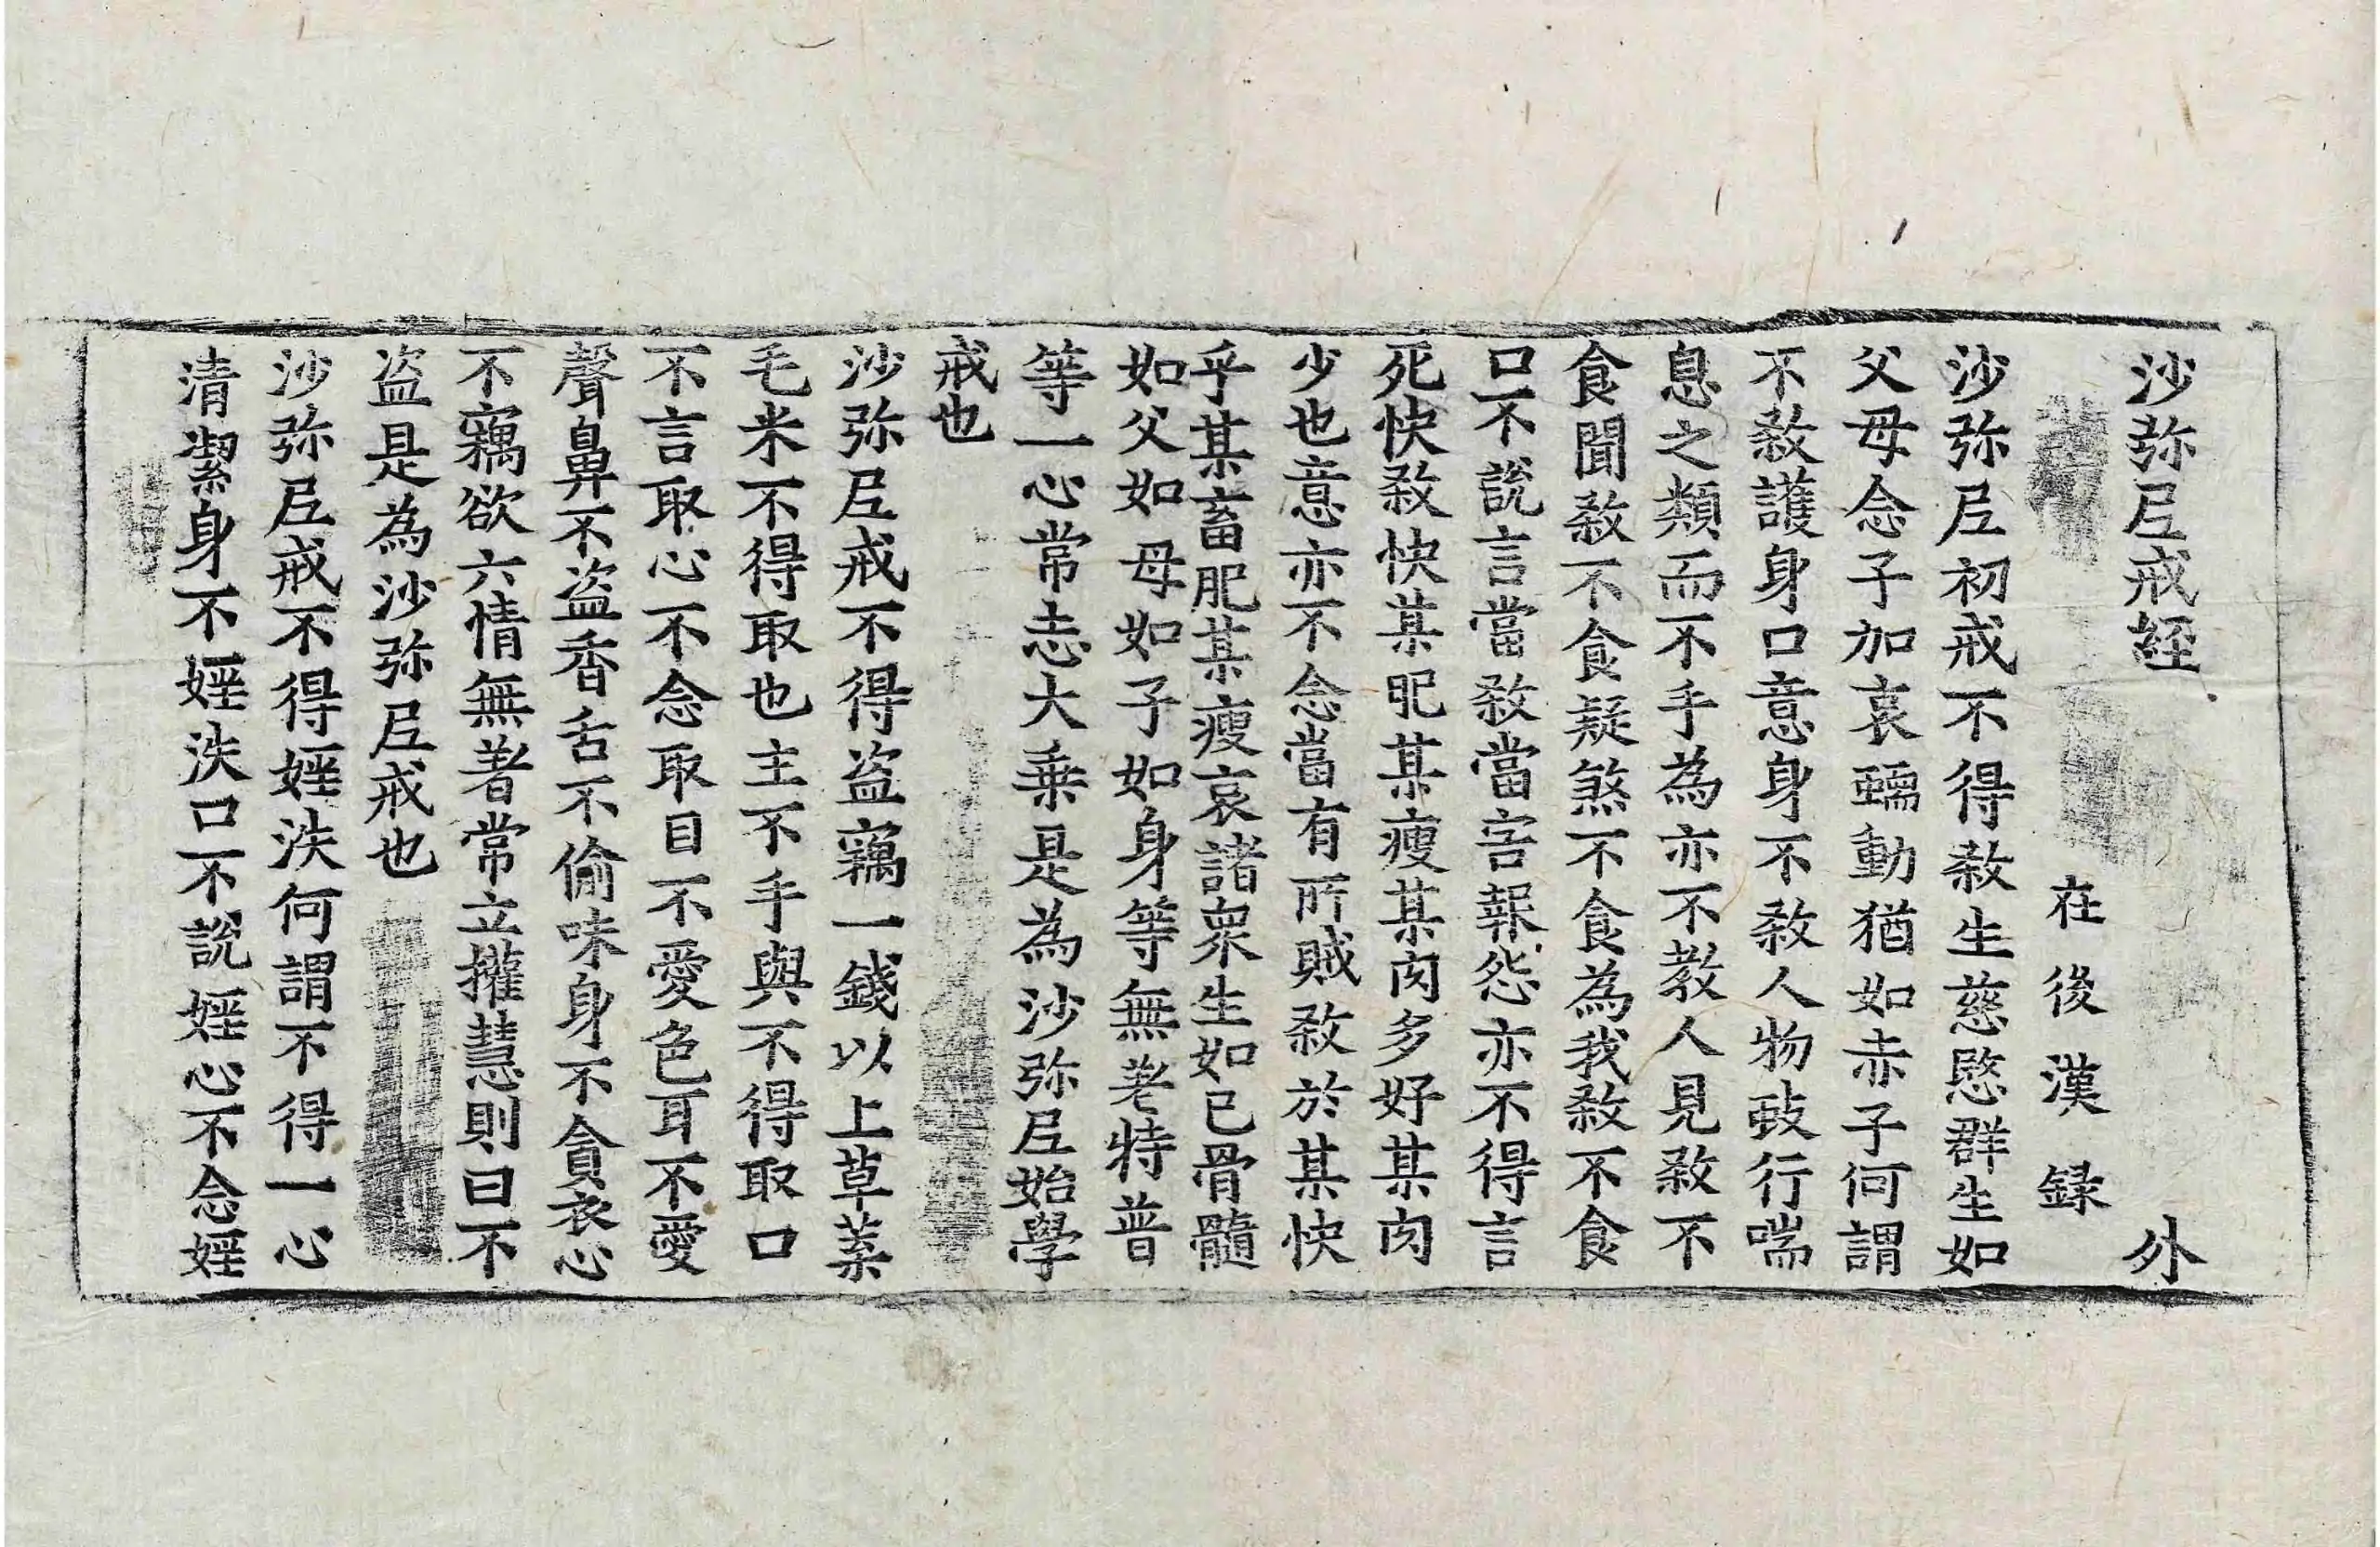 沙弥尼戒経 外
在後漢録
沙弥尼初戒不得殺生慈愍群生如
父母念子加哀蠕動猶如赤子何謂
不殺護身口意身不殺人物蚑行喘
息之類而不手為亦不教人見殺不
食聞殺不食疑煞不食為我殺不食
口不説言當殺當害報怨亦不得言
死快殺快某肥某瘦某肉多好某肉
少也意亦不念當有所賊殺於某快
乎某畜肥某瘦哀諸衆生如己骨髓
如父如母如子如身等無差特普
等一心常志大乗是為沙弥尼始學
戒也
沙弥尼戒不得盗竊一錢以上草葉
毛米不得取也主不手與不得取口
不言取心不念取目不愛色耳不愛
聲鼻不盗香舌不偷味身不貪衣心
不竊欲六情無著常立權慧則曰不
盗是為沙弥尼戒也
沙弥尼戒不得婬泆何謂不得一心
清潔身不婬泆口不説婬心不念婬